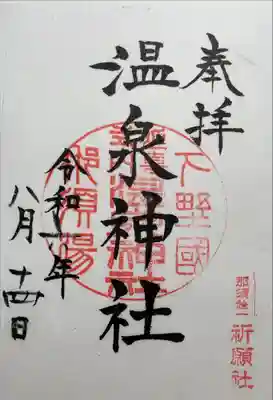 奉拝
下野國
温泉神社
那須湯
令和元年
八月十四日
那須余一
祈願社